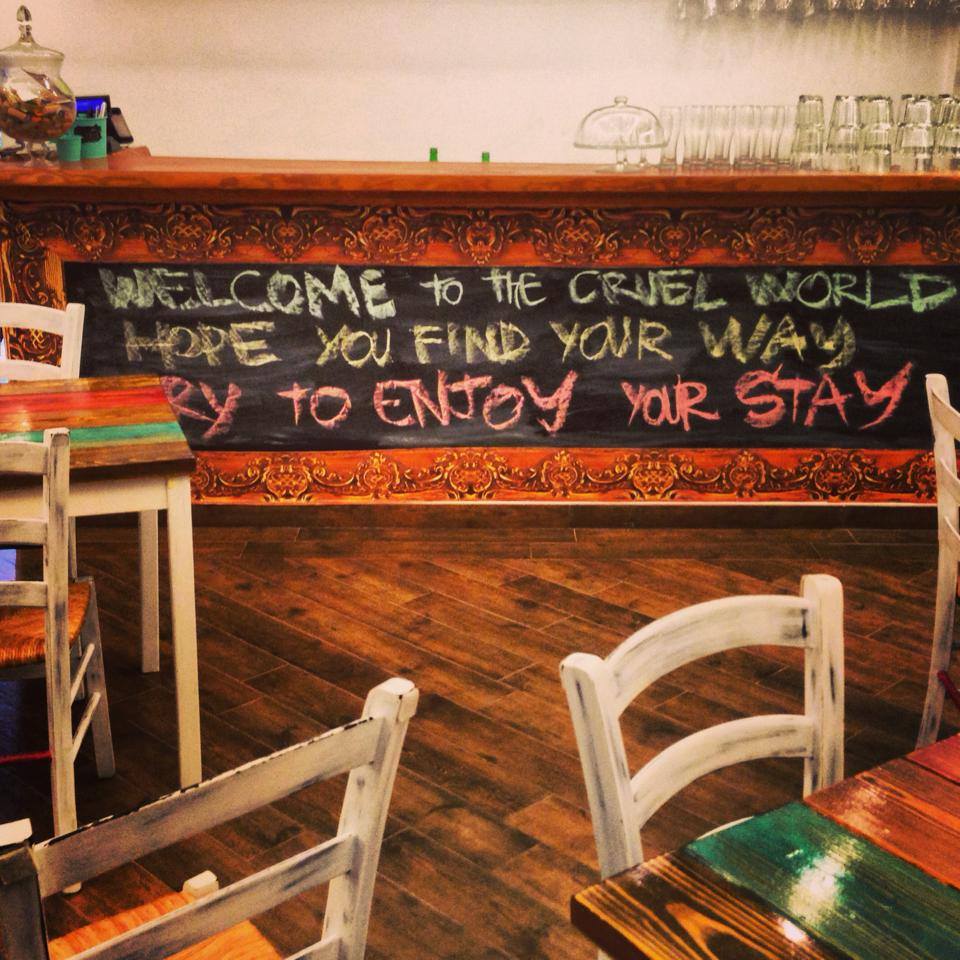 WELCOME TO THE CRUEL WORLD
HOPE YOU FIND YOUR WAY
RY TO ENJOY YOUR STAY